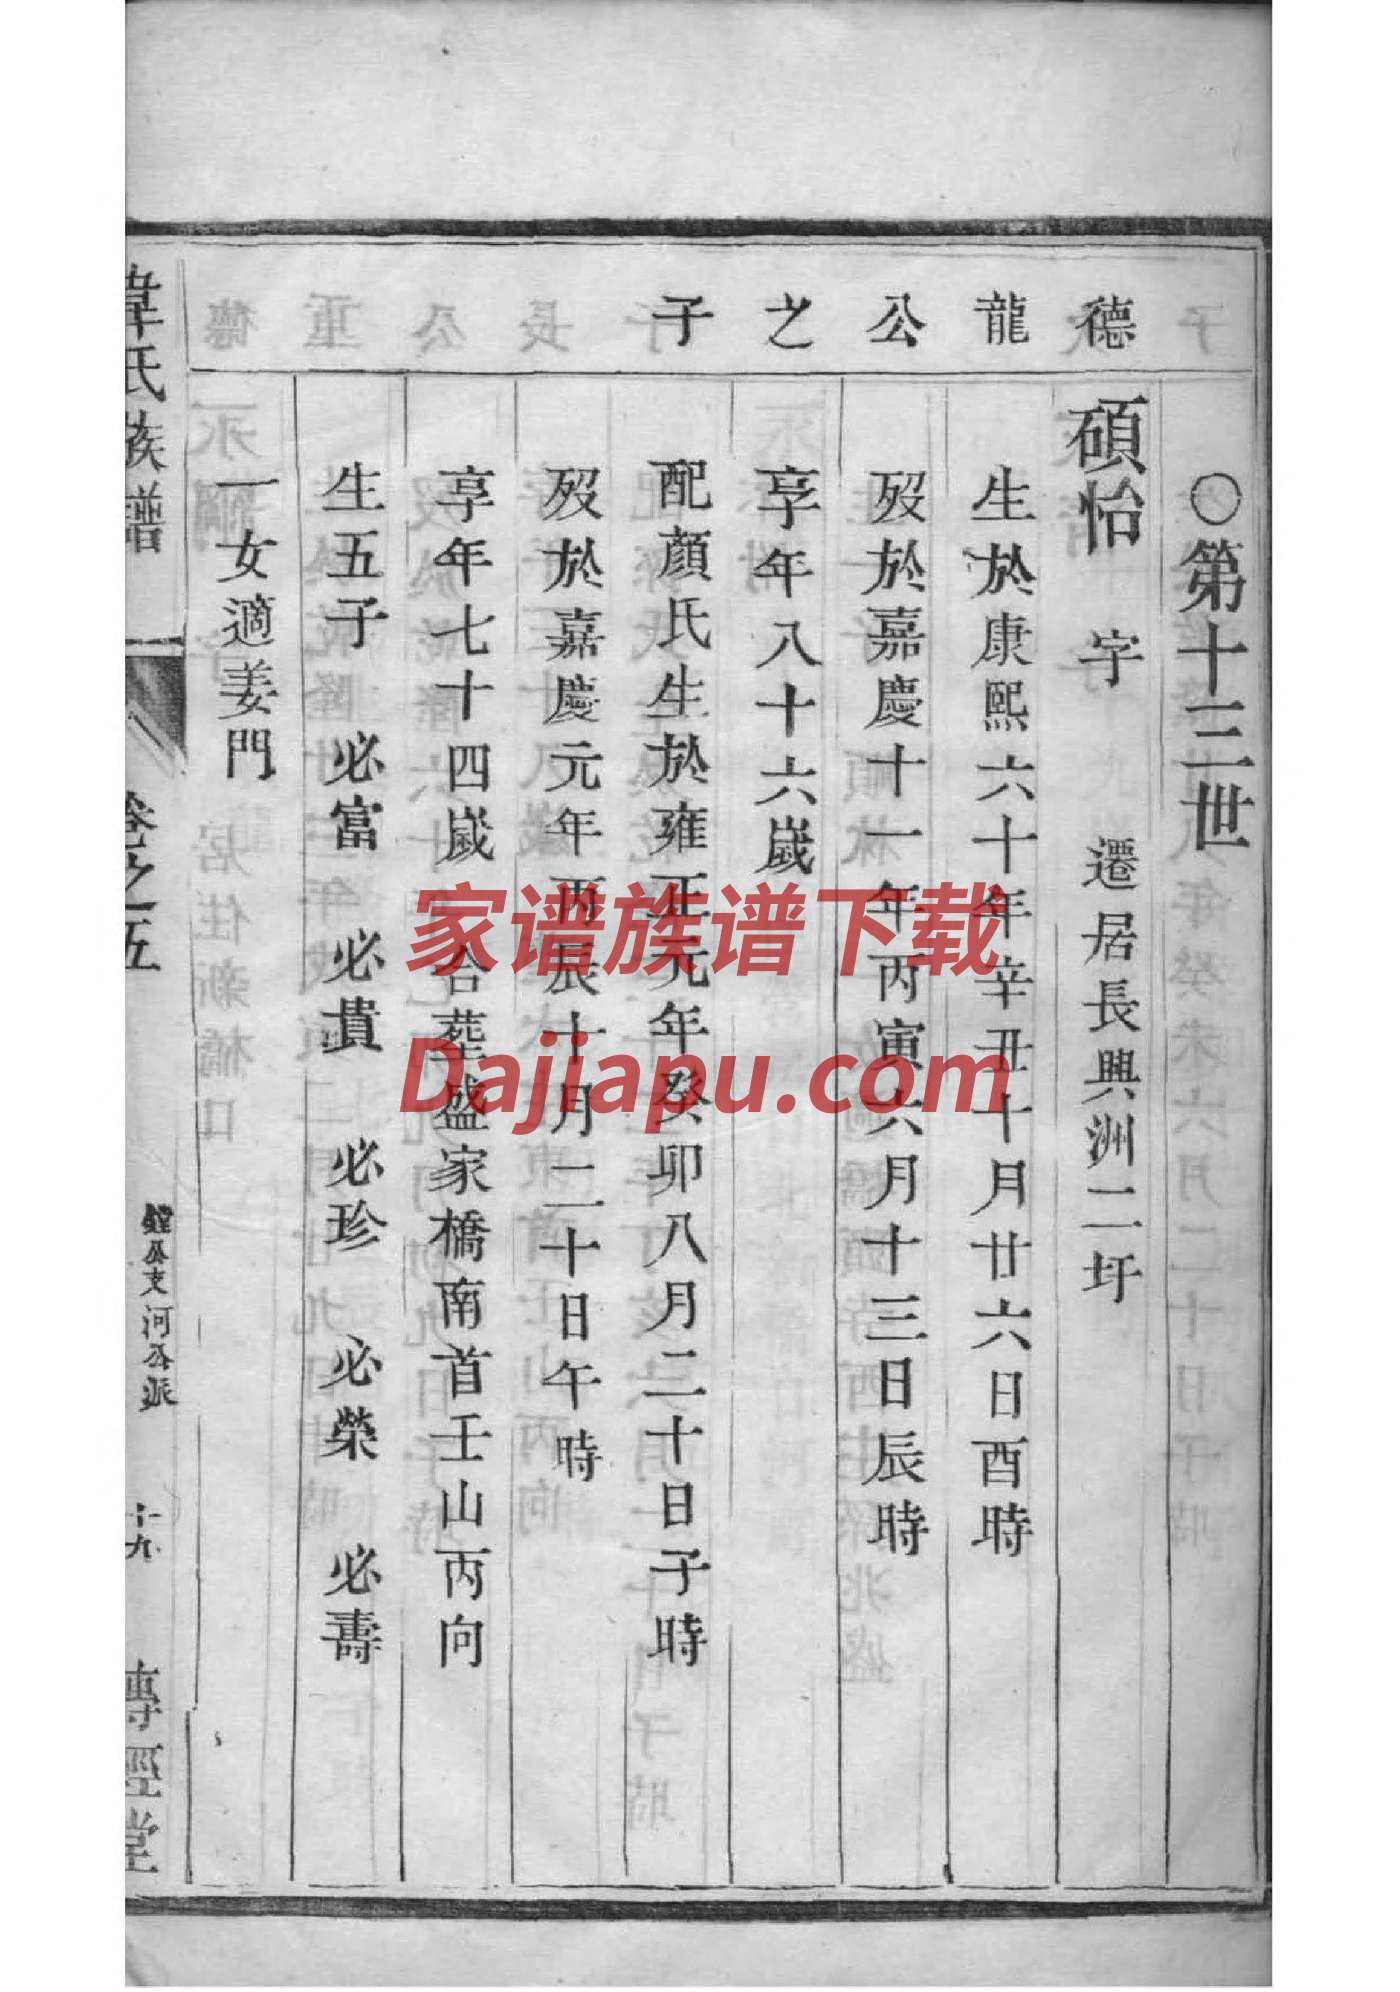 ○第十三世
德龍公之子
碩怡　字　遷居長興洲二圩
生於康熙六十年辛丑十月廿六日酉時
歿於嘉慶十一年丙寅六月十三日辰時
享年八十六嵗
配顏氏生於雍正元年癸卯八月二十日子時
歿於嘉慶元年丙辰十月二十日午時
享年七十四嵗　合葬盛家橋南首壬山丙向
生五子　必富　必貴　必珍　必榮　必壽
一女適姜門
韋氏族譜　卷之五　鏜公支河公派　十九　傳經堂
家谱族谱下载
Dajiapu.com